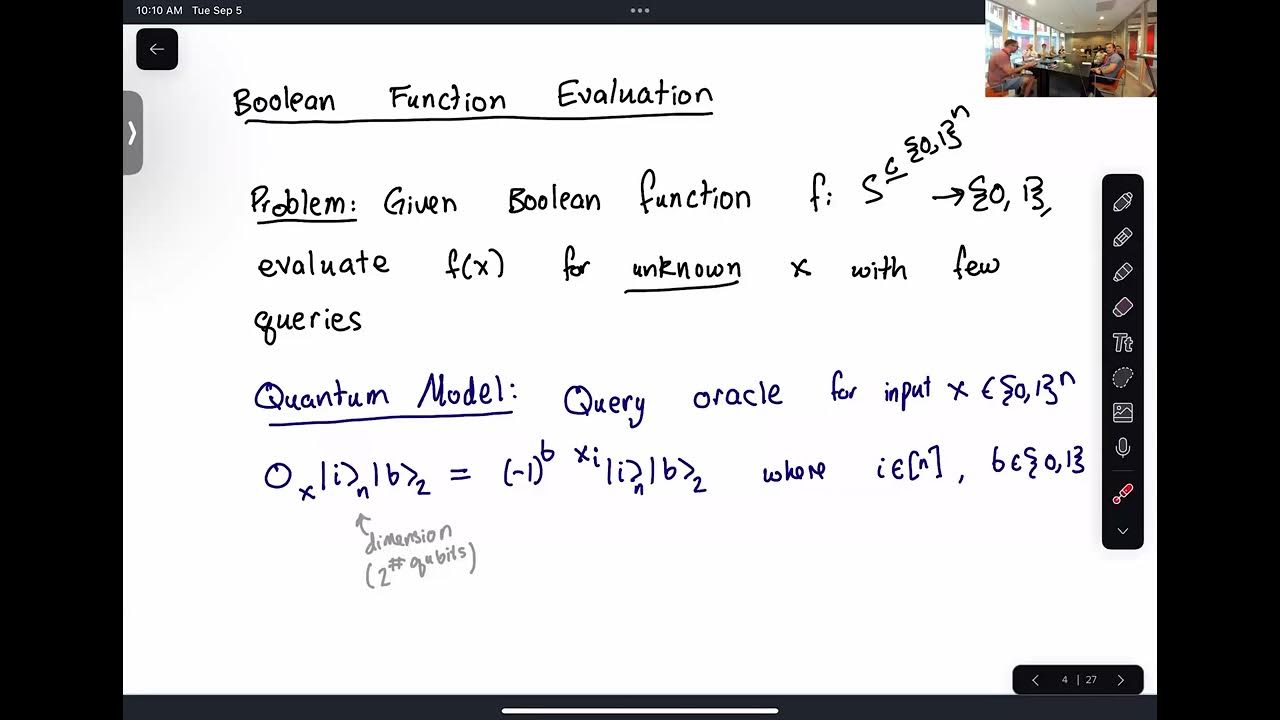 10:10 AM Tue Sep 5
Boolean Function Evaluation
Problem: Given Boolean function f: S ⊆ {0,1}ⁿ → {0,1},
evaluate f(x) for unknown x with few
queries
Quantum Model: Query oracle for input x ∈ {0,1}ⁿ
Oₓ|i⟩ₙ|b⟩₂ = (-1)^{b xᵢ}|i⟩ₙ|b⟩₂ where i∈[n], b∈{0,1}
dimension
(2^{# qubits})
Tt
4 | 27